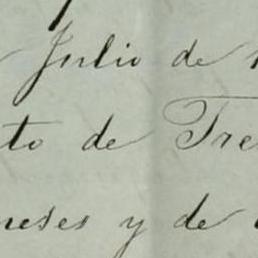 Julio de
to de Tre
meses y de